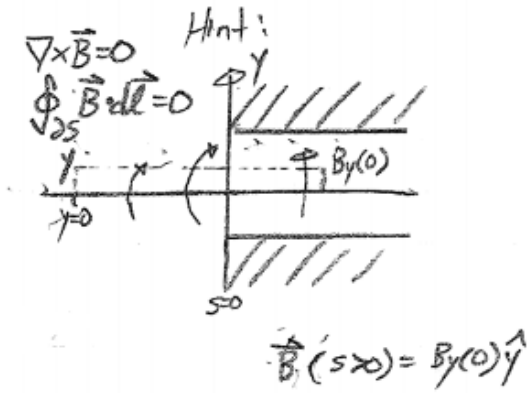 Hint:
∇×B⃗=0
∮∂S B⃗·dl⃗=0
y
y
By(0)
y=0
s=0
B⃗(s>0)= By(0)ŷ